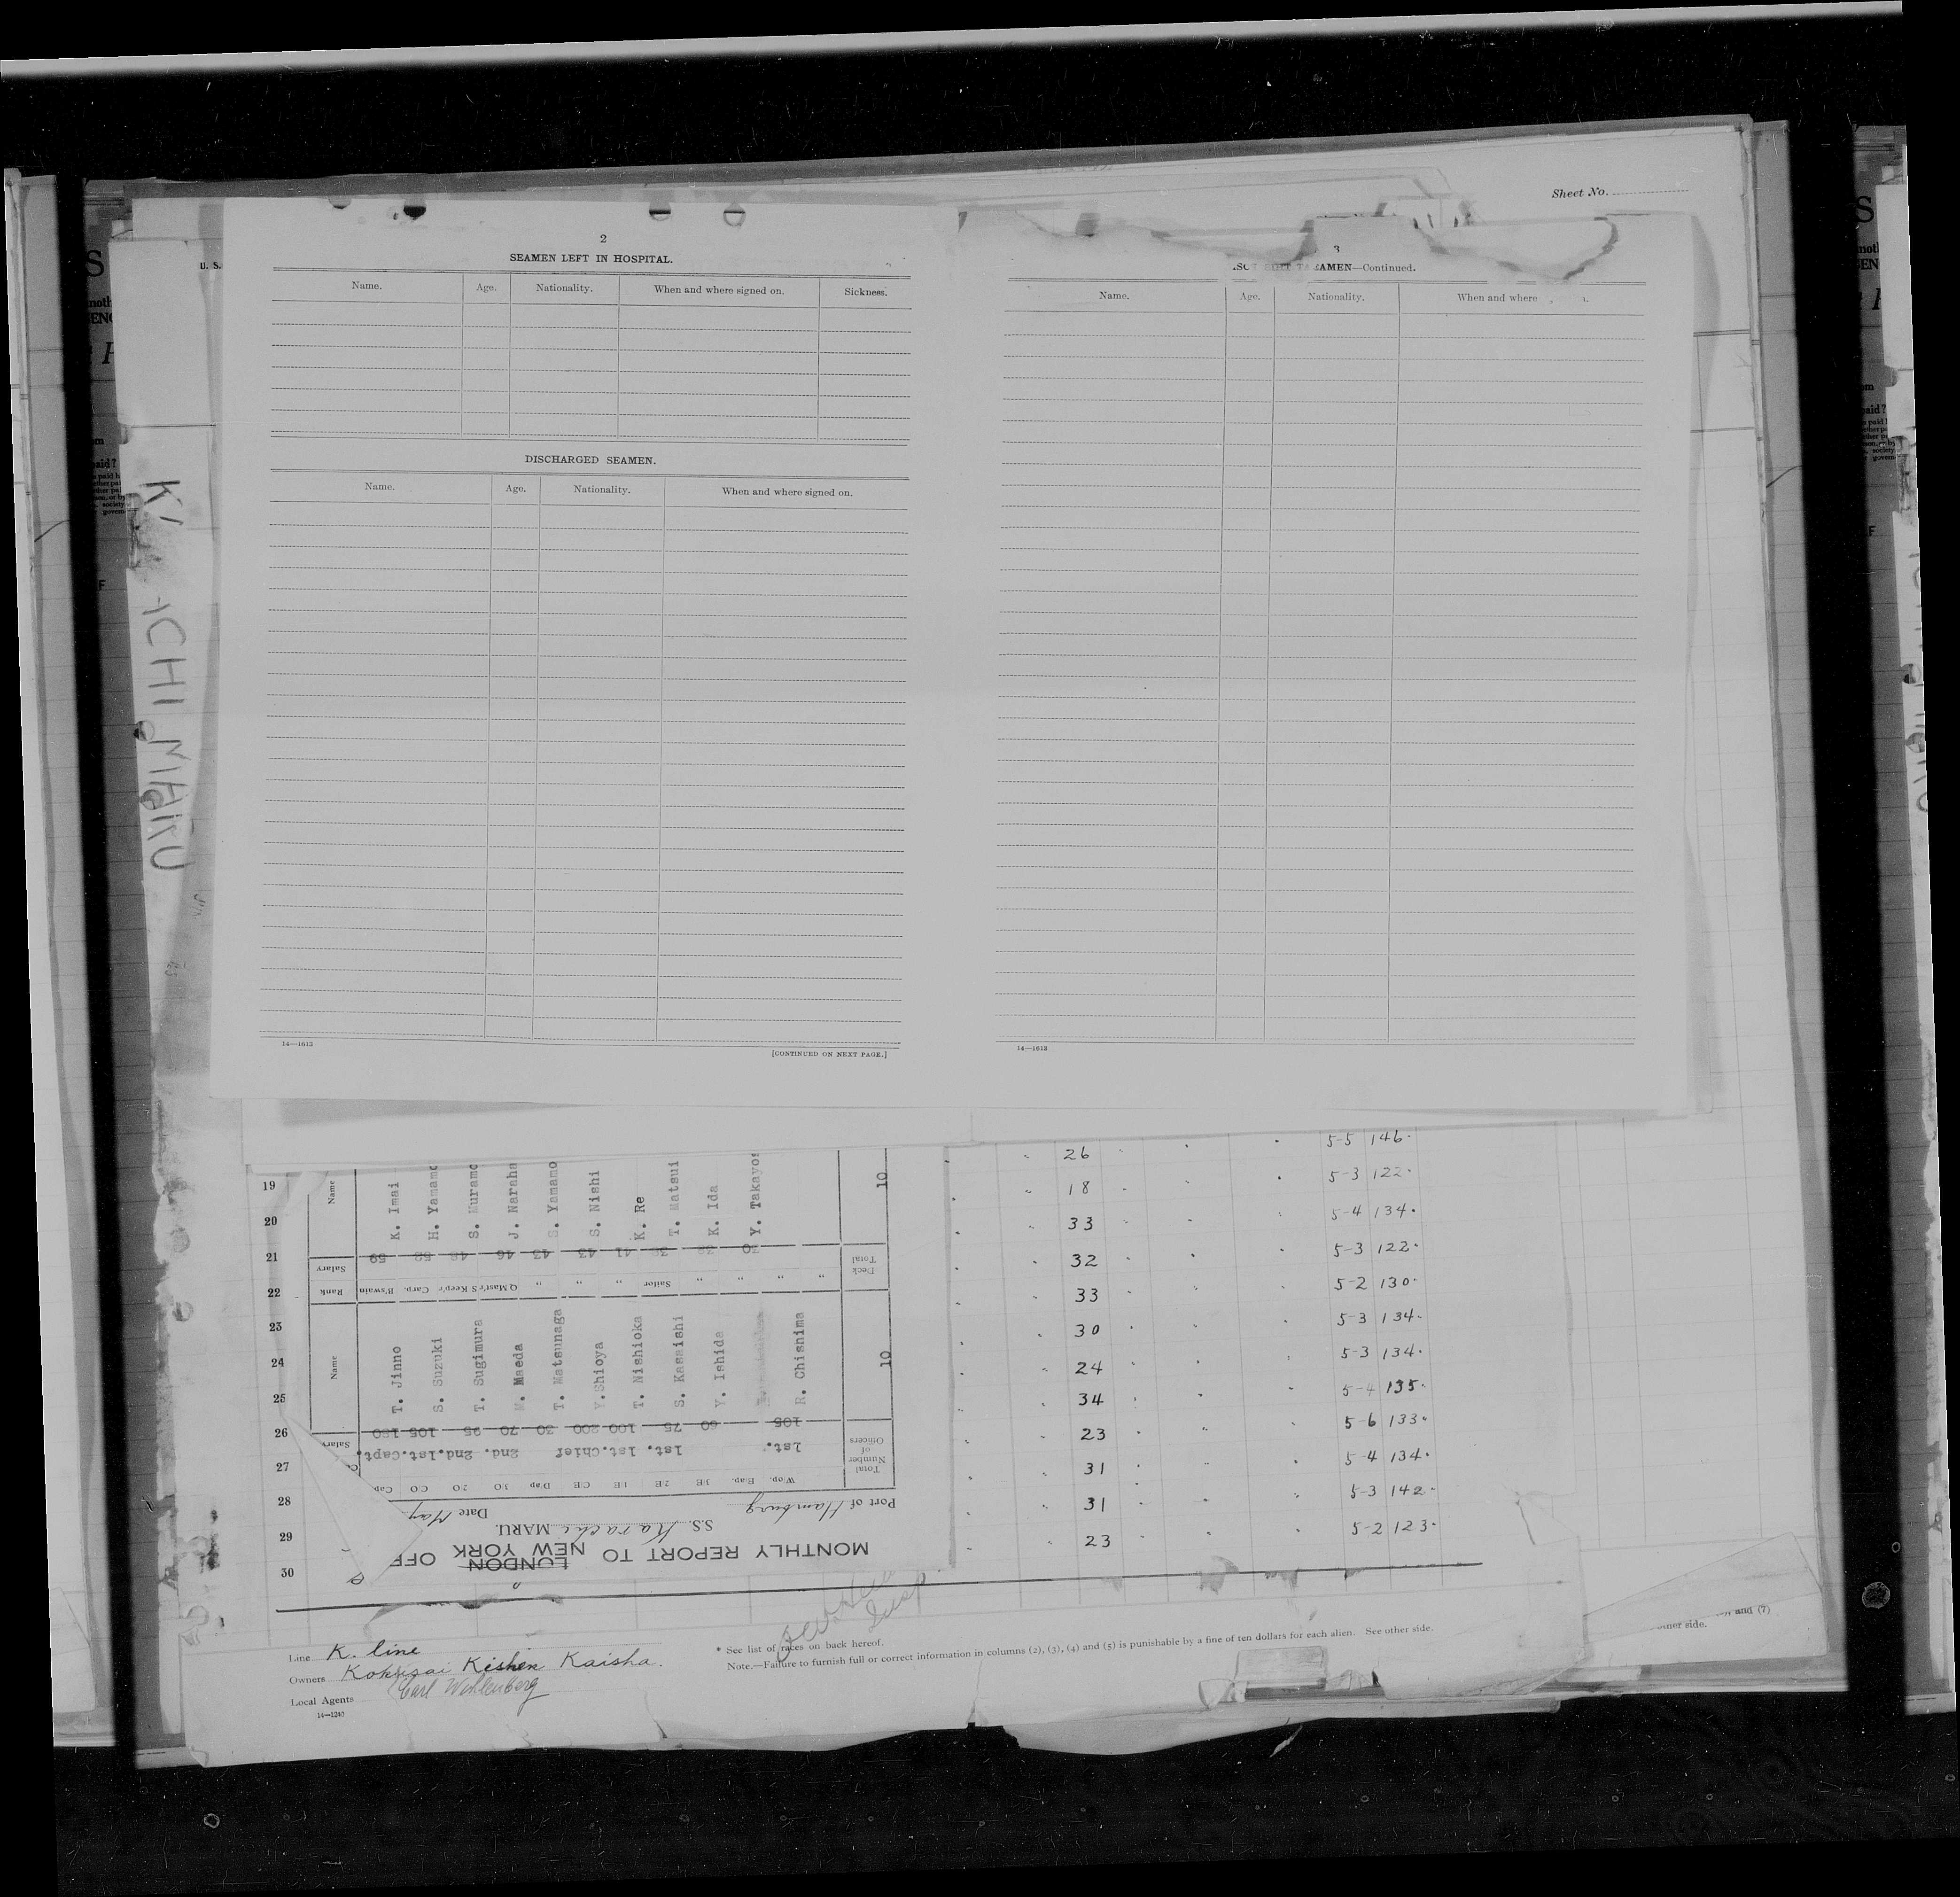 Sheet No.
2
SEAMEN LEFT IN HOSPITAL.
Name. Age. Nationality. When and where signed on. Sickness.
DISCHARGED SEAMEN.
Name. Age. Nationality. When and where signed on.
14—1613
[CONTINUED ON NEXT PAGE.]
3
AMEN—Continued.
Name. Age. Nationality. When and where
14—1613
U. S.
ICHI MARU
19
20
21
22
23
24
25
26
27
28
29
30
Name
K. Imai
H. Yamamo
S. Muramo
J. Naraha
S. Yamamo
S. Nishi
K. Re
T. Matsui
K. Ida
Y. Takayos
10
Salary 59 52 48 46 43 43 41 36
Deck Total
Rank B'swain Carp. S Keep'r Q Mast'r " " " Sailor " " " "
Name
T. Jinno
S. Suzuki
T. Sugimura
M. Maeda
T. Matsunaga
Y.Shioya
T. Nishioka
S. Kasaishi
Y. Ishida
R. Chishima
10
105 95 70 30 200 100 75 60 105
Capt. 1st. 2nd. 2nd. Chief 1st. 1st. 1st.
Total Number of Officers
CO 2O 3O Dap CE 1E 2E 3E Eap. Wop.
Port of Hamburg Date May
S.S. Karachi MARU.
MONTHLY REPORT TO NEW YORK OFF
LONDON
26 5-5 146
18 5-3 122
33 5-4 134
32 5-3 122
33 5-2 130
30 5-3 134
24 5-3 134
34 5-4 135
23 5-6 133
31 5-4 134
31 5-3 142
23 5-2 123
Line K. line
Owners Kokusai Kishen Kaisha.
Local Agents Carl Wehlenberg
14—1240
* See list of races on back hereof.
Note.—Failure to furnish full or correct information in columns (2), (3), (4) and (5) is punishable by a fine of ten dollars for each alien. See other side.
and (7)
other side.